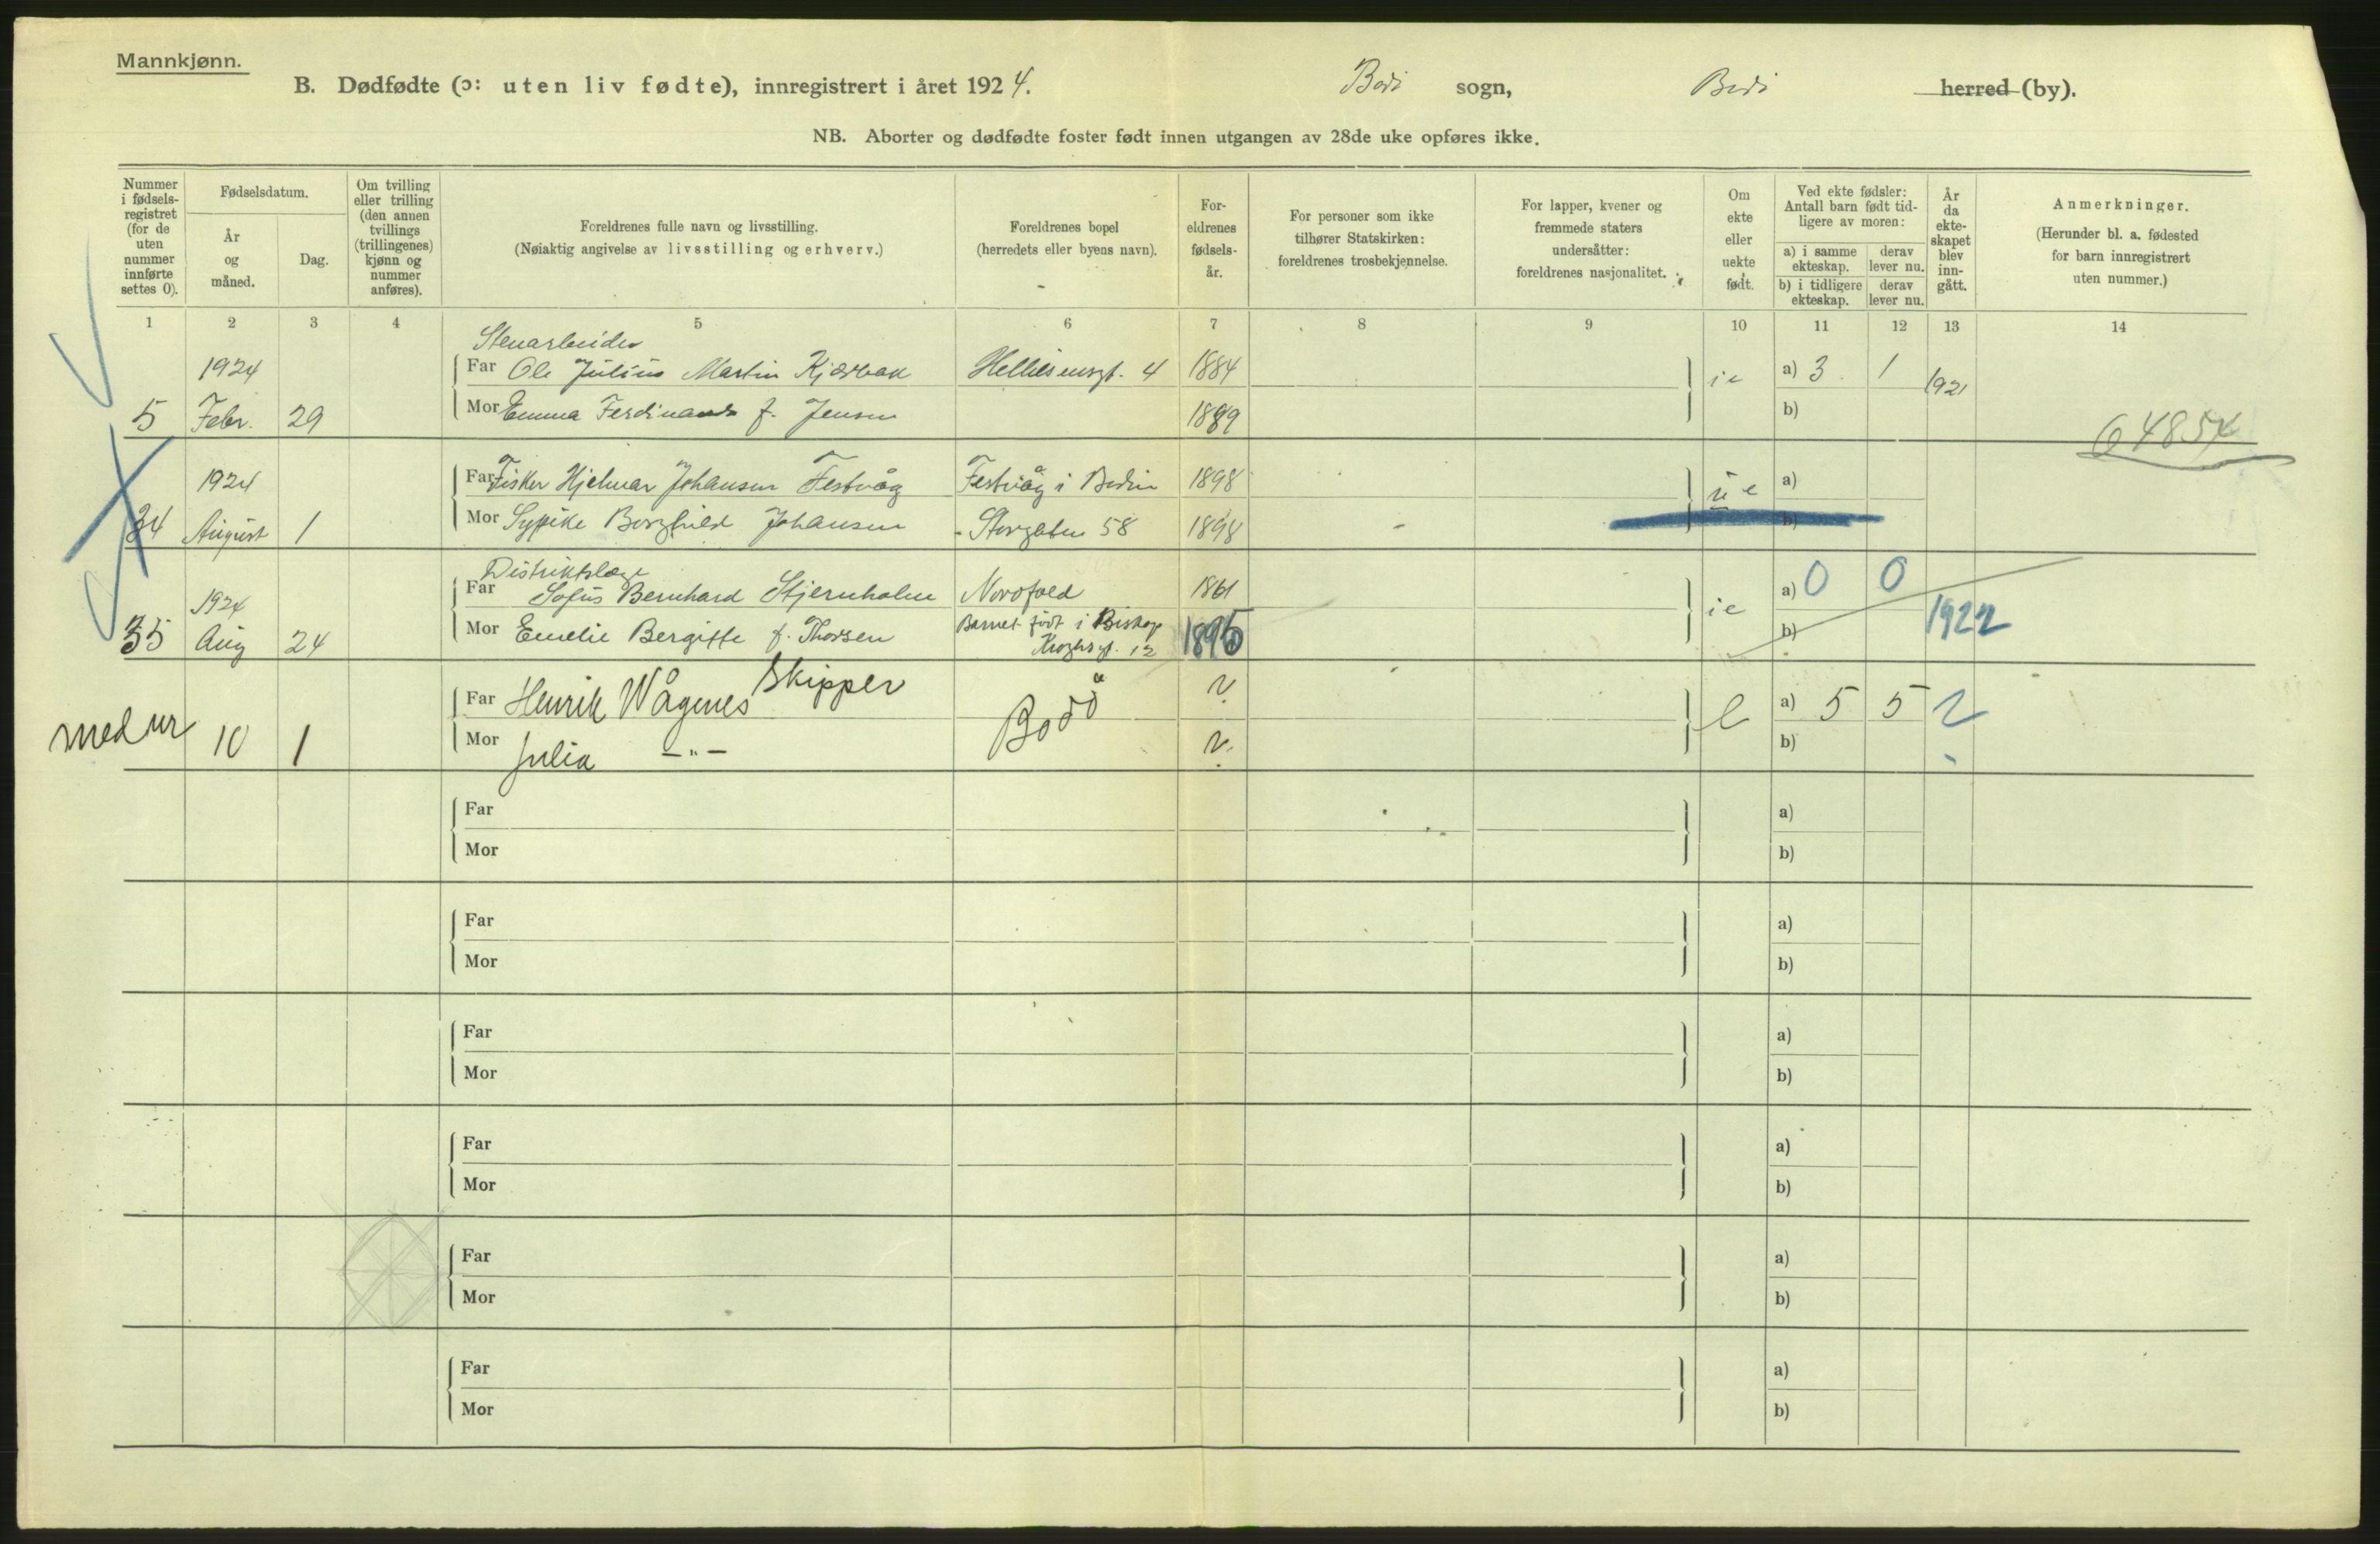 Mannkjønn.
B. Dødfødte (ɔ: uten liv fødte), innregistrert i året 1924. Bodø sogn, Bodø herred (by).
NB. Aborter og dødfødte foster født innen utgangen av 28de uke opføres ikke.
Nummer
i fødsels-
registret
(for de
uten
nummer
innførte
settes 0).
Fødselsdatum.
År
og
måned.
Dag.
Om tvilling
eller trilling
(den annen
tvillings
(trillingenes)
kjønn og
nummer
anføres).
Foreldrenes fulle navn og livsstilling.
(Nøiaktig angivelse av livsstilling og erhverv.)
Foreldrenes bopel
(herredets eller byens navn).
For-
eldrenes
fødsels-
år.
For personer som ikke
tilhører Statskirken:
foreldrenes trosbekjennelse.
For lapper, kvener og
fremmede staters
undersåtter:
foreldrenes nasjonalitet.
Om
ekte
eller
uekte
født.
Ved ekte fødsler:
Antall barn født tid-
ligere av moren:
a) i samme
ekteskap.
derav
lever nu.
b) i tidligere
ekteskap.
derav
lever nu.
År
da
ekte-
skapet
blev
inn-
gått.
Anmerkninger.
(Herunder bl. a. fødested
for barn innregistrert
uten nummer.)
1 2 3 4 5 6 7 8 9 10 11 12 13 14
Stenarbeider
1924 Far Ole Julius Martin Kjærbak 1884 a) 3 1 1921
5 Febr. 29 Mor Emma f. Jensen 1889 b)
6485
1924 Far Fisker Hjelmar Johansen Festvåg Festvåg i Bodin 1898 ue a)
34 August 1 Mor Borghild Johansen Storgaten 58 1898 b)
Distriktslæge
1924 Far Sofus Bernhard Stjernholm Nordfold 1861 a) 0 0
35 Aug 24 Mor Emelie Bergitte f. Thorsen Barnet født i Biskop b) 1922
12
Far Henrik Wågenes Skipper Bodö ? e a) 5 5 ?
10 1 Mor Julia —"— ? b)
Far a)
Mor b)
Far a)
Mor b)
Far a)
Mor b)
Far a)
Mor b)
Far a)
Mor b)
Far a)
Mor b)